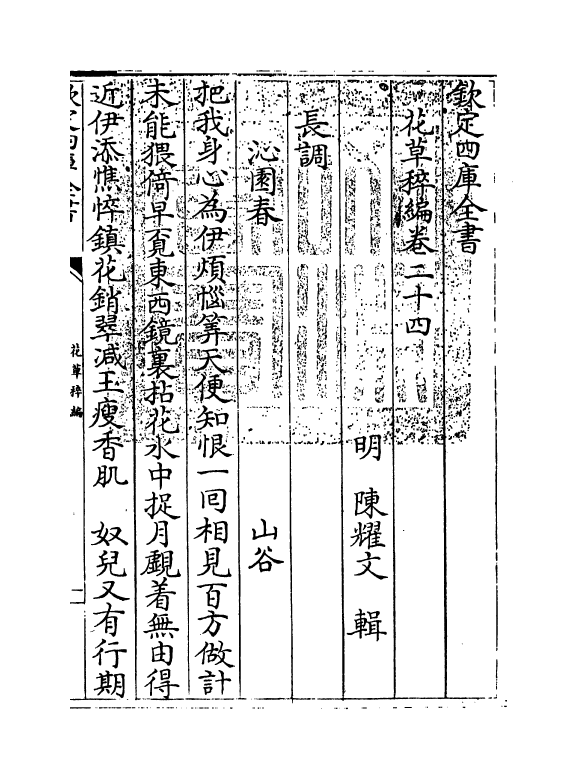 欽定四庫全書
花草稡編卷二十四
明 陳耀文 輯
長調
沁園春 山谷
把我身心為伊煩惱筭天便知恨一囘相見百方做計
未能猥倚早覔東西鏡裏拈花水中捉月覷着無由得
近伊添憔悴鎮花銷翠減玉瘦香肌 奴兒又有行期
花草稡編